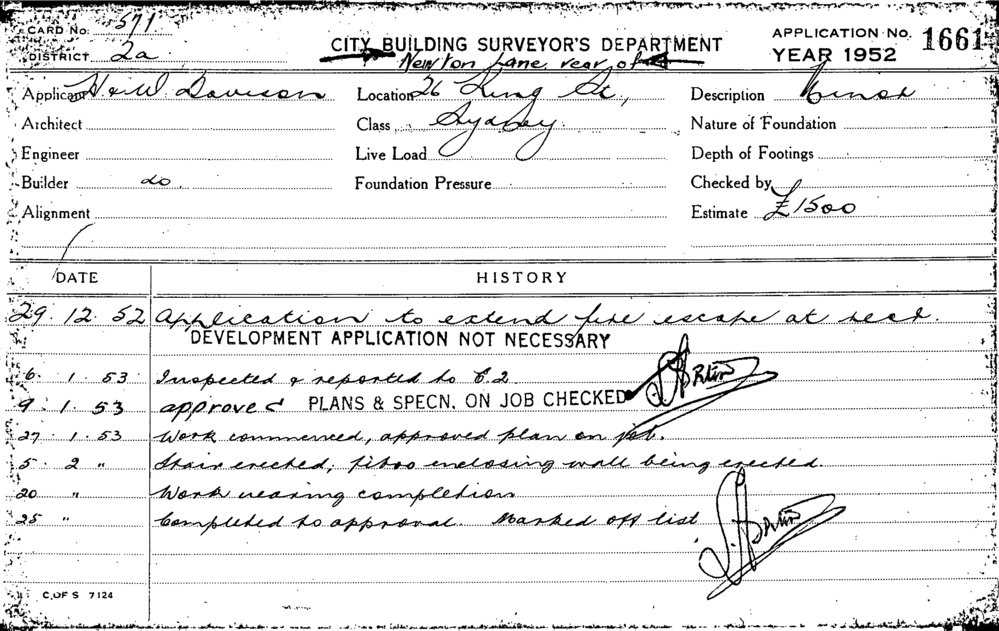 CARD No. 571
DISTRICT 2a
CITY BUILDING SURVEYOR'S DEPARTMENT
Newton Lane rear of
APPLICATION No. 1661
YEAR 1952
Applicant H & W Davison
Location 26 King St,
Description Minor
Architect
Class Sydney
Nature of Foundation
Engineer
Live Load
Depth of Footings
Builder do
Foundation Pressure
Checked by
Alignment
Estimate £1500
DATE HISTORY
29. 12. 52 Application to extend fire escape at rear.
DEVELOPMENT APPLICATION NOT NECESSARY
6. 1. 53 Inspected & reported to C.2
9. 1. 53 approved PLANS & SPECN. ON JOB CHECKED
27. 1. 53 Work commenced, approved plan on job.
5. 2 " Stair erected; fibro enclosing wall being erected.
20 " Work nearing completion
25 " Completed to approval. Marked off list
C. OF S 7124